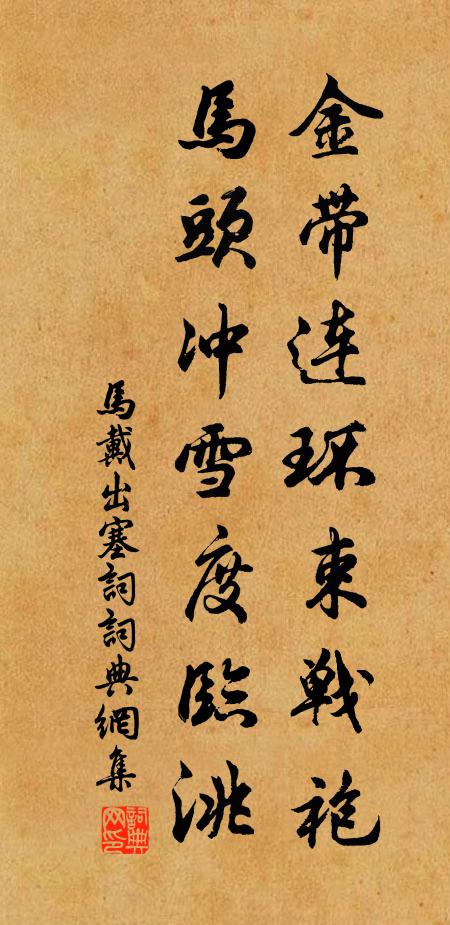 金带连环束戰袍
馬頭冲雪度臨洮
馬戴出塞詞詞典網集
詞典网印